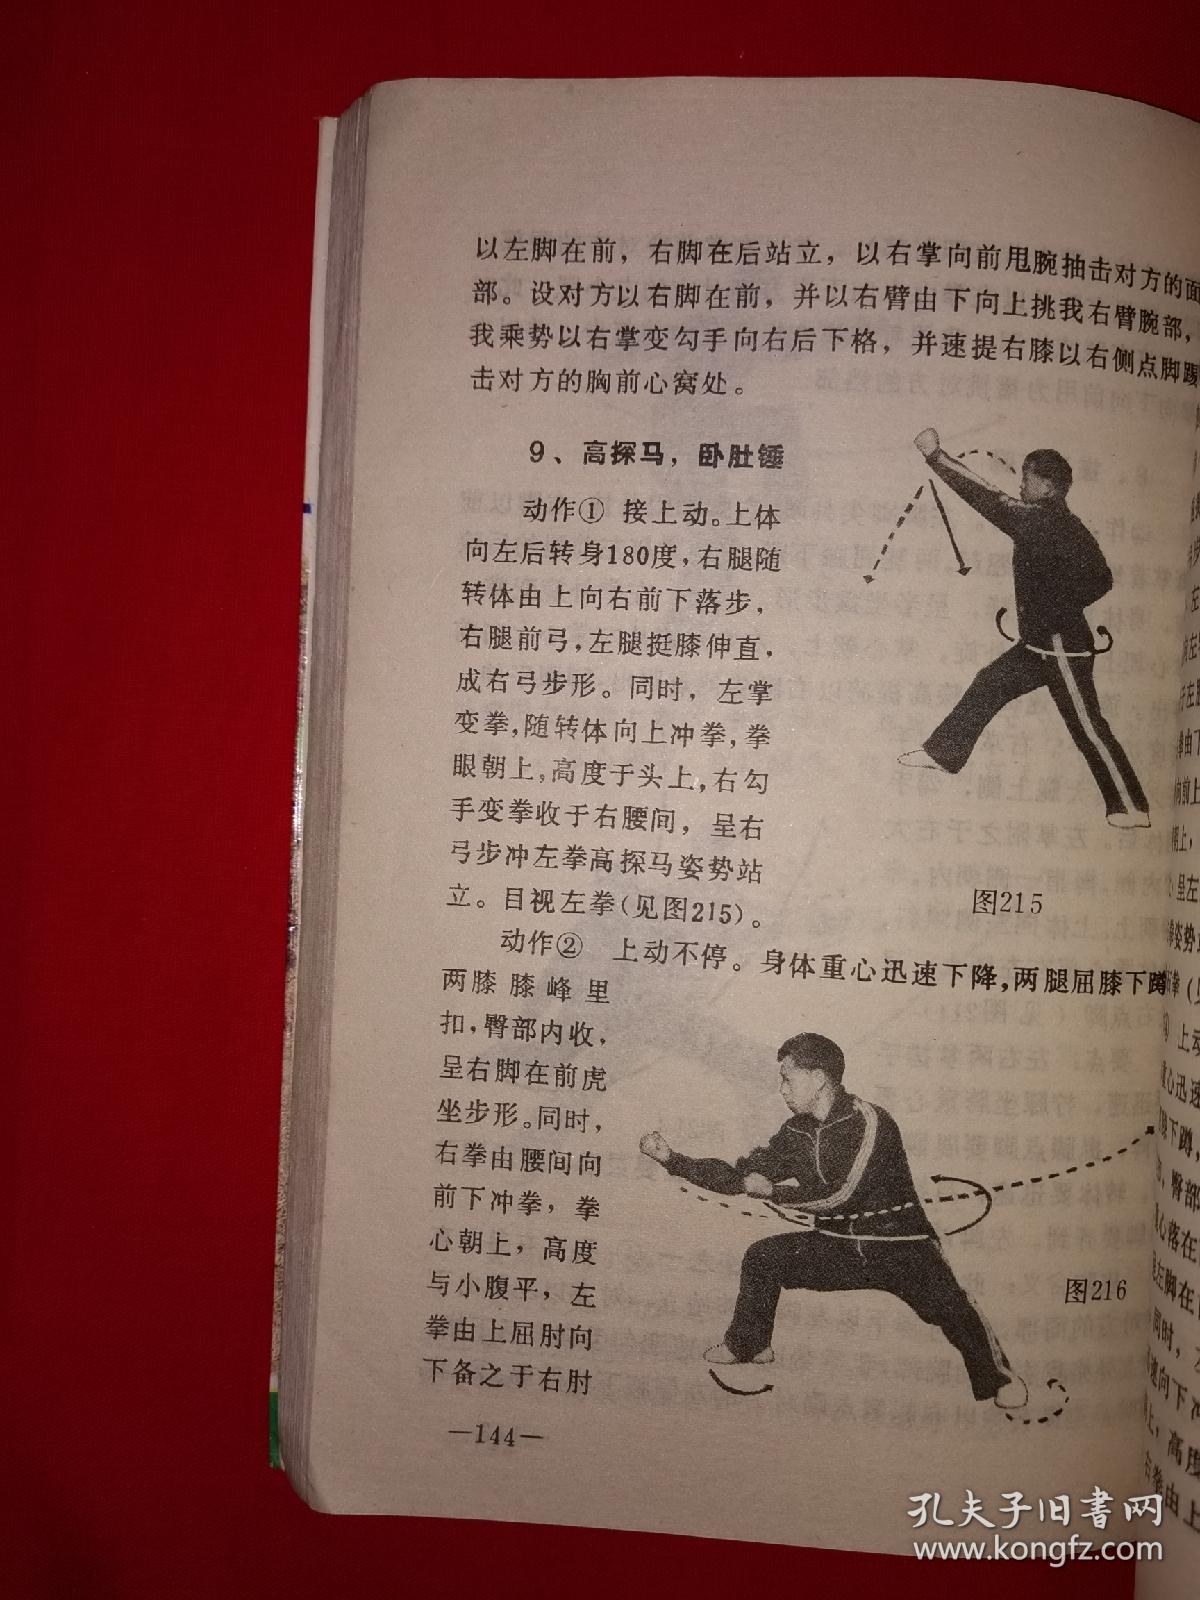 以左脚在前，右脚在后站立，以右掌向前甩腕抽击对方的面
部。设对方以右脚在前，并以右臂由下向上挑我右臂腕部，
我乘势以右掌变勾手向右后下格，并速提右膝以右侧点脚踢
击对方的胸前心窝处。
9、高探马，卧肚锤
动作① 接上动。上体
向左后转身180度，右腿随
转体由上向右前下落步，
右腿前弓，左腿挺膝伸直，
成右弓步形。同时，左掌
变拳，随转体向上冲拳，拳
眼朝上，高度于头上，右勾
手变拳收于右腰间，呈右
弓步冲左拳高探马姿势站
立。目视左拳（见图215）。
图215
动作② 上动不停。身体重心迅速下降，两腿屈膝下蹲
两膝膝峰里
扣，臀部内收，
呈右脚在前虎
坐步形。同时，
右拳由腰间向
前下冲拳，拳
心朝上，高度
与小腹平，左
拳由上屈肘向
下备之于右肘
图216
—144—
孔夫子旧书网
www.kongfz.com